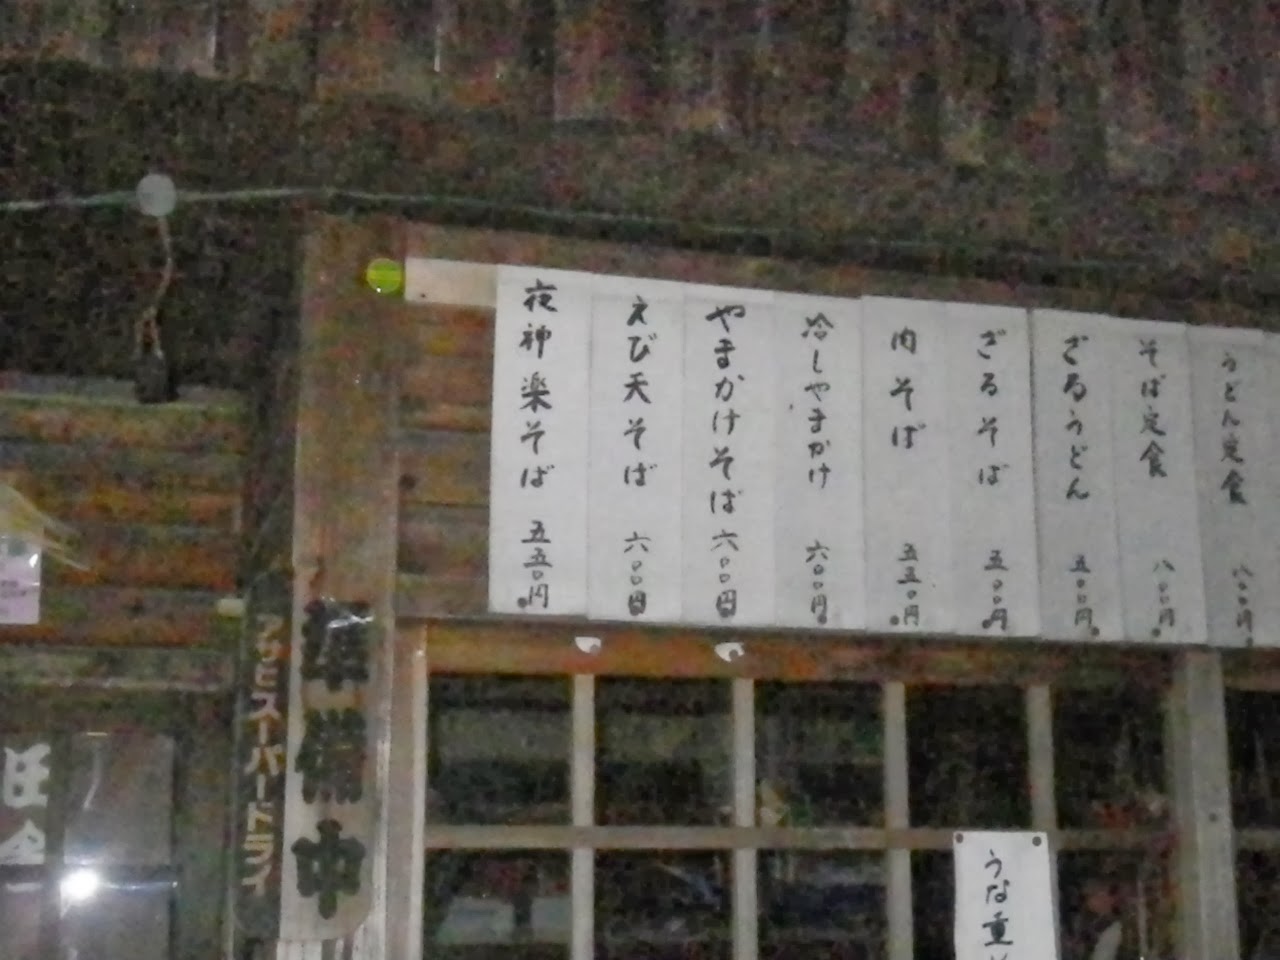 夜神楽そば 五五〇円
えび天そば 六〇〇円
やまかけそば 六〇〇円
冷しやまかけ 六〇〇円
肉そば 五五〇円
ざるそば 五〇〇円
ざるうどん 五〇〇円
そば定食 八〇〇円
うどん定食 八〇〇円
アサヒスーパードライ
準備中
うな重